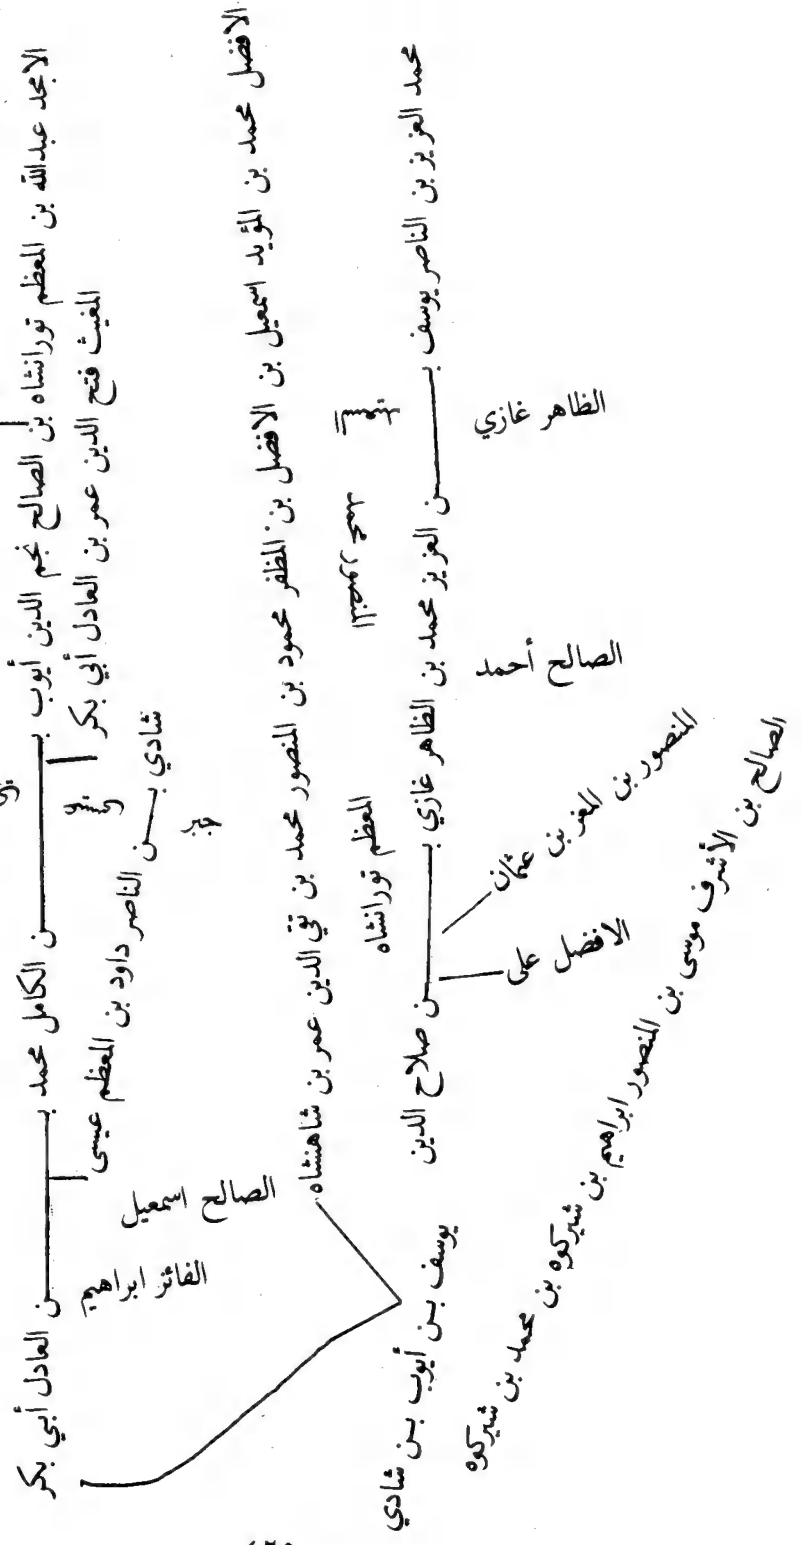 الامجد عبدالله بن المعظم تورانشاه بن الصالح نجم الدين أيوب بـــن الكامل محمد بـــن العادل أبي بكر
المغيث فتح الدين عمر بن العادل أبي بكر
شادي بــن الناصر داود بن المعظم عيسى
الصالح اسمعيل
الفائز ابراهيم
الافضل محمد بن المؤيد اسمعيل بن الافضل بن المظفر محمود بن المنصور محمد بن تقي الدين عمر بن شاهنشاه
المعظم تورانشاه
محمد العزيز بن الناصر يوسف بـــن العزيز محمد بن الظاهر غازي بـــن صلاح الدين
يوسف بــن أيوب بــن شادي
الظاهر غازي
الصالح أحمد
المنصور بن العزيز بن عثمان
الافضل على
الصالح بن الأشرف موسى بن المنصور ابراهيم بن شيركوه بن محمد بن شيركوه